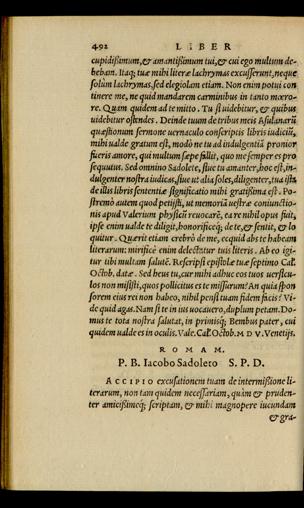 492 LIBER
cupidißimum, & amantißimum tui, & cui ego multum de-
bebam. Itaq; tuæ mihi literæ lachrymas excusserunt, neque
solùm lachrymas, sed elegiolam etiam. Non enim potui con
tinere me, ne quid mandarem carminibus in tanto mœro-
re. Quam quidem ad te mitto. Tu si uidebitur, & quibus
uidebitur ostendes. Deinde tuum de tribus meis Asulanarũ
quæstionum sermone uernaculo conscriptis libris iudiciũ,
mihi ualde gratum est, modò ne tu ad indulgentiã pronior
fueris amore, qui multum sæpe fallit, quo me semper es pro
sequutus. Sed omnino Sadolete, siue tu amanter, hoc est, in-
dulgenter nostra iudicas, siue ut alia soles, diligenter, tua ista
de illis libris sententiæ significatio mihi gratißima est. Po-
stremò autem quod petijsti, ut memoriã uestræ coniunctio-
nis apud Valerium physicũ reuocarẽ, ea re nihil opus fuit,
ipse enim ualde te diligit, honorificeq; de te, & sentit, & lo
quitur. Quærit etiam crebrò de me, ecquid abs te habeam
literarum: mirificè enim delectatur tuis literis. Ab eo igi-
tur tibi multam salutẽ. Rescripsi epistolæ tuæ septimo Cal.
Octob. datæ. Sed heus tu, cur mihi adhuc eos tuos uersicu-
los non misisti, quos pollicitus es te missurum? An quia spon
sorem eius rei non habeo, nihil pensi tuam fidem facis? Vi-
de quid agas. Nam si te in ius uocauero, duplum petam. Do-
mus te tota nostra salutat, in primisq; Bembus pater, cui
quidem ualde es in oculis. Vale. Cal. Octob. M D V. Venetijs.
ROMAM.
P. B. Iacobo Sadoleto S. P. D.
ACCIPIO excusationem tuam de intermißione li-
terarum, non tam quidem necessariam, quàm & pruden-
ter amicißimeq; scriptam, & mihi magnopere iucundam
& gra-